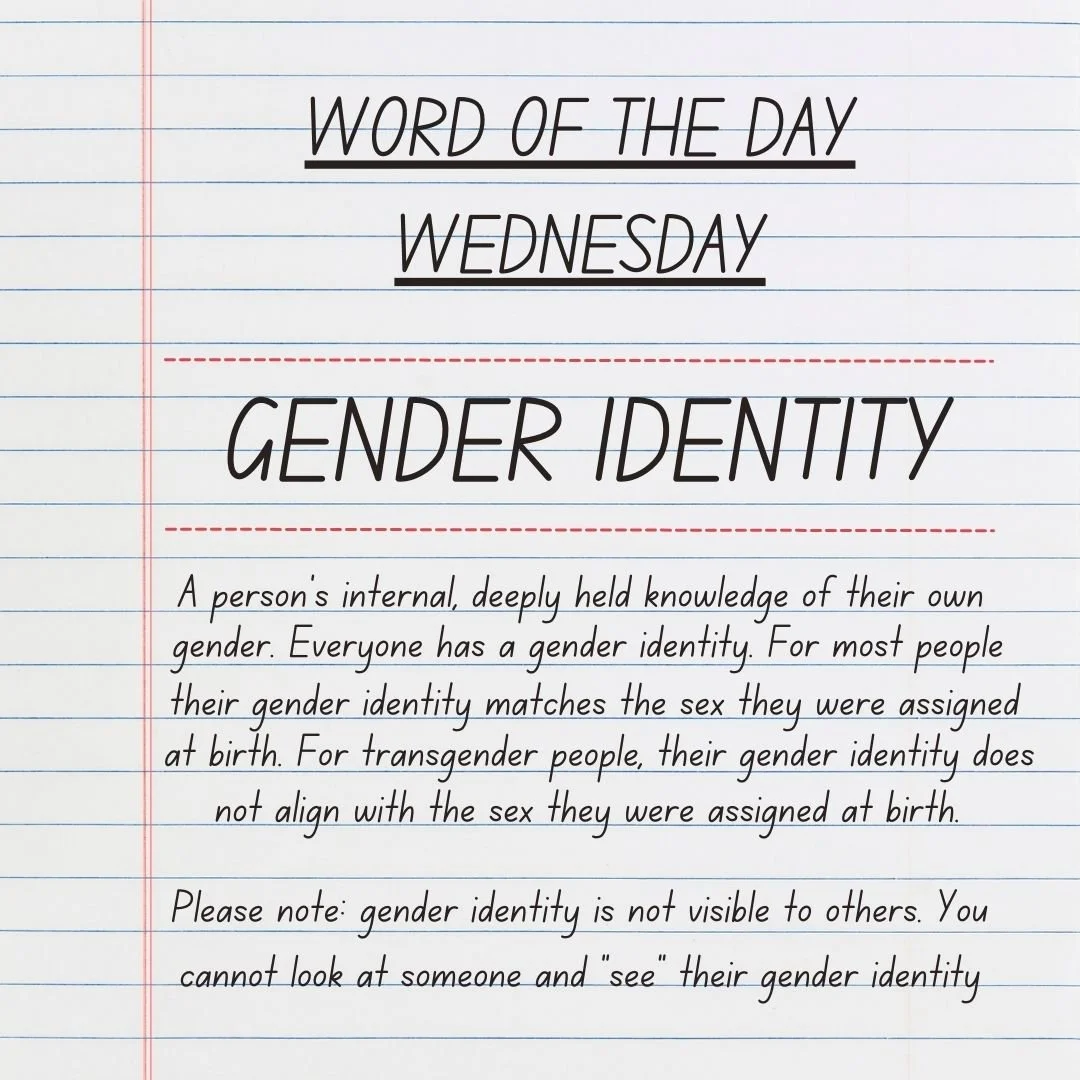 WORD OF THE DAY
WEDNESDAY
GENDER IDENTITY
A person's internal, deeply held knowledge of their own
gender. Everyone has a gender identity. For most people
their gender identity matches the sex they were assigned
at birth. For transgender people, their gender identity does
not align with the sex they were assigned at birth.
Please note: gender identity is not visible to others. You
cannot look at someone and "see" their gender identity